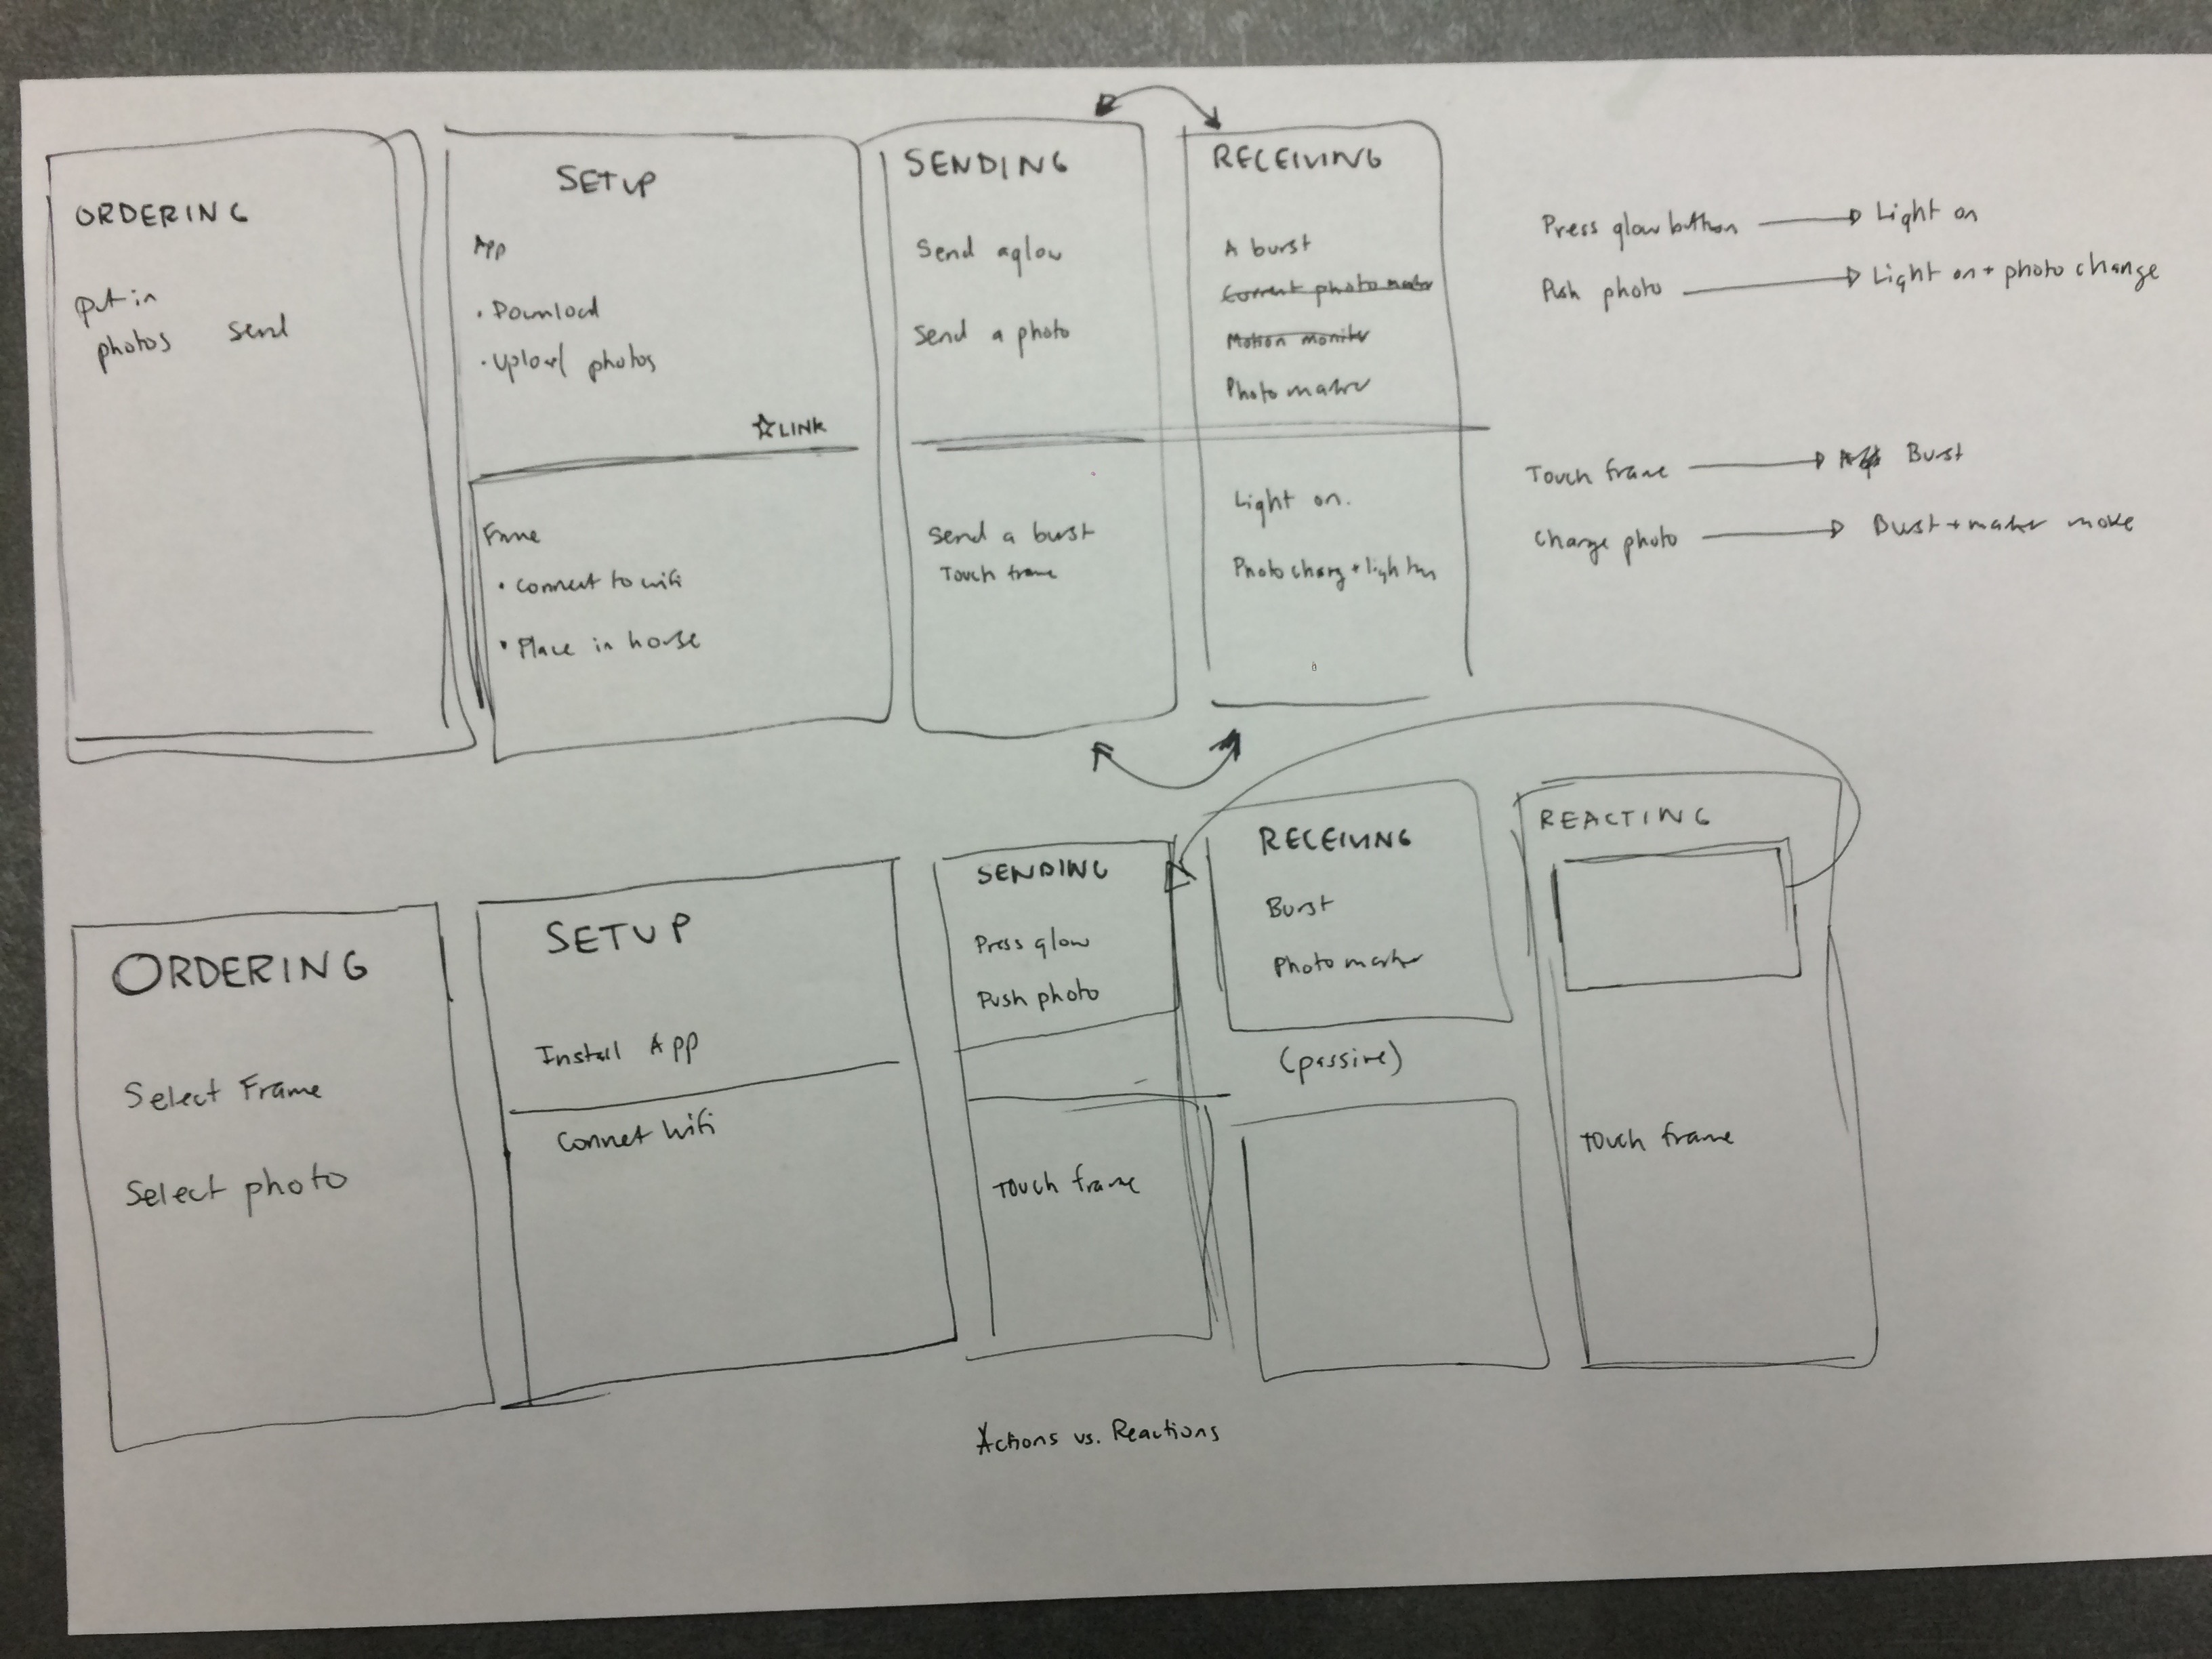 ORDERING
Put in
photos send
SETUP
App
• Download
• Upload photos
☆LINK
Frame
• Connect to wifi
• Place in house
SENDING
Send a glow
Send a photo
Send a burst
Touch frame
RECEIVING
A burst
Current photo
Motion moniter
Photo marker
Light on.
Photo chang + light on
Press glow button → Light on
Push photo → Light on + photo change
Touch frame → Burst
Change photo → Burst + marker move
ORDERING
Select Frame
Select photo
SETUP
Install App
Connet Wifi
SENDING
Press glow
Push photo
Touch frame
RECEIVING
Burst
Photo marker
(passive)
REACTING
Touch frame
Actions vs. Reactions